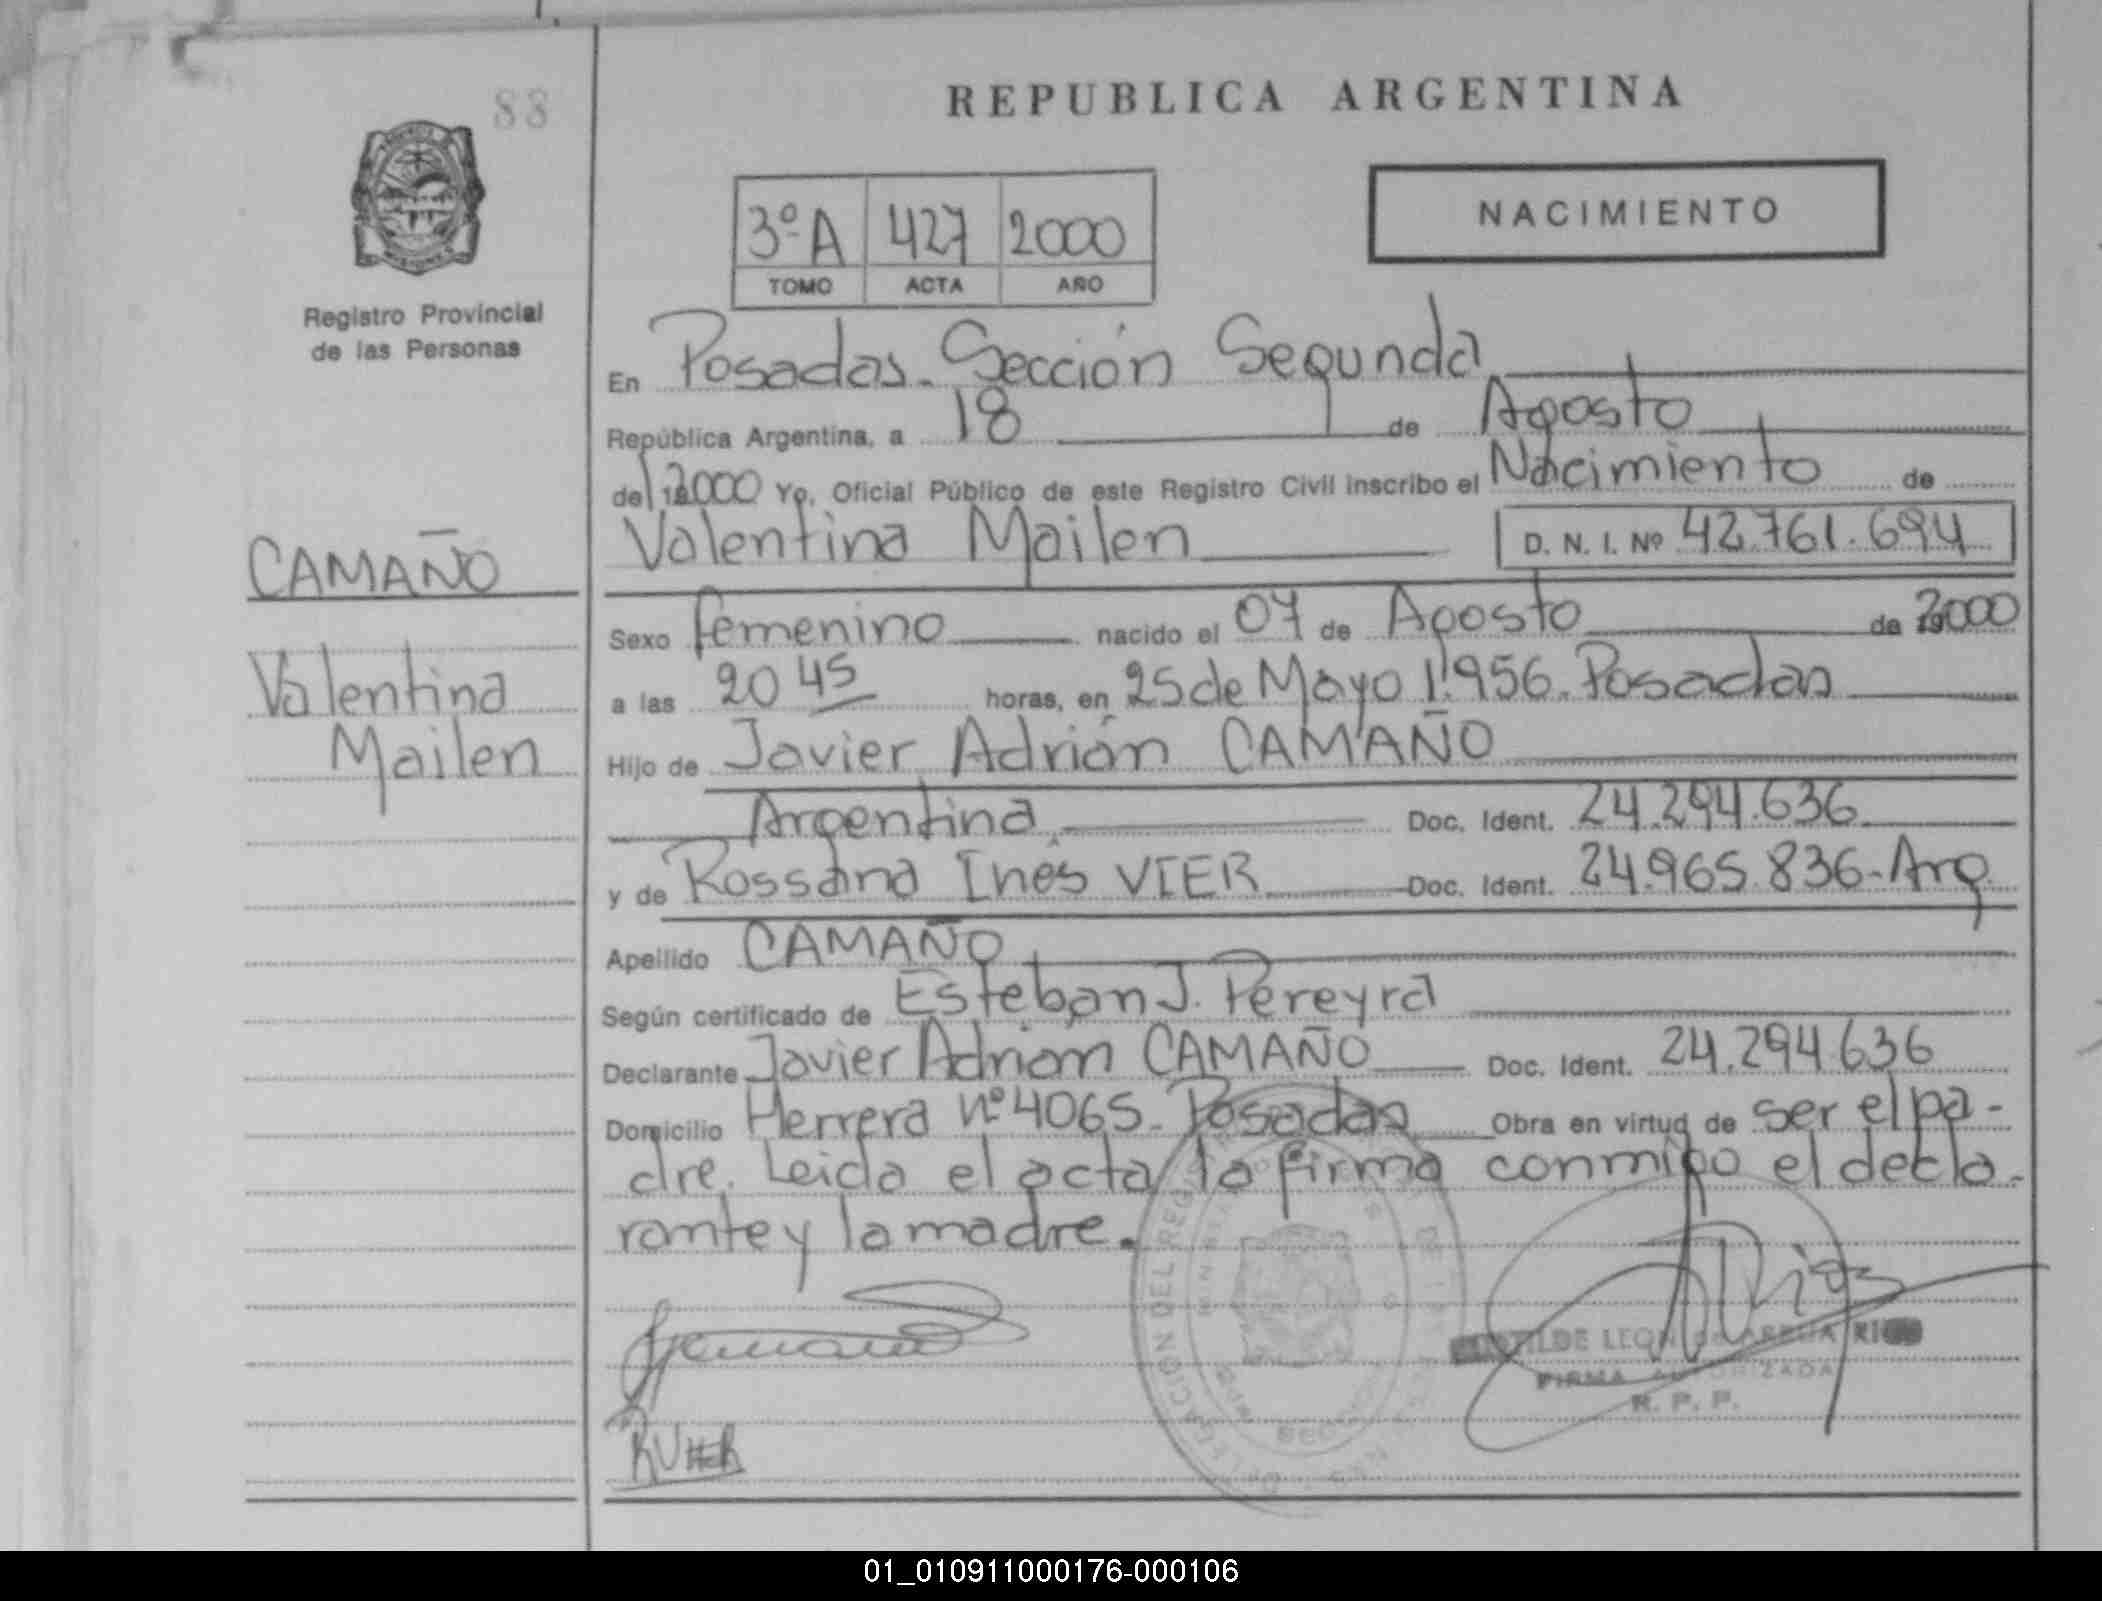 88
REPUBLICA ARGENTINA
3º A 427 2000
TOMO ACTA AÑO
NACIMIENTO
Registro Provincial
de las Personas
En Posadas. Sección Segunda
República Argentina, a 18 de Agosto
del 2000 Yo, Oficial Público de este Registro Civil inscribo el Nacimiento de
Valentina Mailen D. N. I. Nº 42.761.694
CAMAÑO
Valentina
Mailen
Sexo femenino nacido el 07 de Agosto de 2000
a las 20 45 horas, en 25 de Mayo 1.956. Posadas
Hijo de Javier Adrián CAMAÑO
Argentina Doc. Ident. 24.294.636
y de Rossana Inés VIER Doc. Ident. 24.965.836-Arg.
Apellido CAMAÑO
Según certificado de Esteban J. Pereyra
Declarante Javier Adrián CAMAÑO Doc. Ident. 24.294.636
Domicilio Herrera Nº 4065. Posadas Obra en virtud de ser el pa-
dre. Leida el acta la firma conmigo el decla-
rante y la madre.
DELEGACIÓN DEL
LEON de ARRUA
FIRMA AUTORIZADA
R. P. P.
01_010911000176-000106